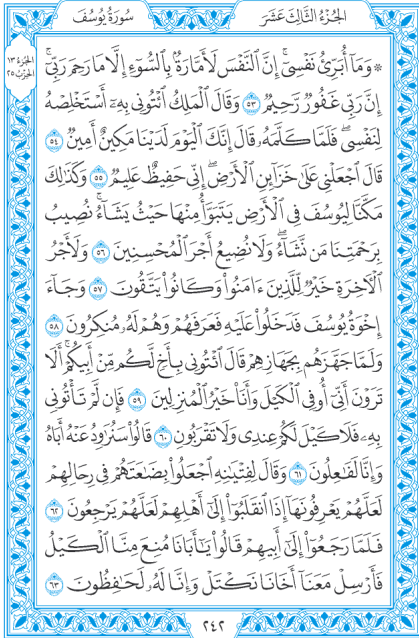 الجُزْءُ الثَّالِثَ عَشَرَ
سُورَةُ يُوسُفَ
الجُزْءُ ١٣
الحِزْبُ ٢٥
۞ وَمَآ أُبَرِّئُ نَفْسِيٓۚ إِنَّ ٱلنَّفْسَ لَأَمَّارَةُۢ بِٱلسُّوٓءِ إِلَّا مَا رَحِمَ رَبِّيٓۚ
إِنَّ رَبِّي غَفُورٞ رَّحِيمٞ ٥٣ وَقَالَ ٱلْمَلِكُ ٱئْتُونِي بِهِۦٓ أَسْتَخْلِصْهُ
لِنَفْسِيۖ فَلَمَّا كَلَّمَهُۥ قَالَ إِنَّكَ ٱلْيَوْمَ لَدَيْنَا مَكِينٌ أَمِينٞ ٥٤
قَالَ ٱجْعَلْنِي عَلَىٰ خَزَآئِنِ ٱلْأَرْضِۖ إِنِّي حَفِيظٌ عَلِيمٞ ٥٥ وَكَذَٰلِكَ
مَكَّنَّا لِيُوسُفَ فِي ٱلْأَرْضِ يَتَبَوَّأُ مِنْهَا حَيْثُ يَشَآءُۚ نُصِيبُ
بِرَحْمَتِنَا مَن نَّشَآءُۖ وَلَا نُضِيعُ أَجْرَ ٱلْمُحْسِنِينَ ٥٦ وَلَأَجْرُ
ٱلْأٓخِرَةِ خَيْرٞ لِّلَّذِينَ ءَامَنُواْ وَكَانُواْ يَتَّقُونَ ٥٧ وَجَآءَ
إِخْوَةُ يُوسُفَ فَدَخَلُواْ عَلَيْهِ فَعَرَفَهُمْ وَهُمْ لَهُۥ مُنكِرُونَ ٥٨
وَلَمَّا جَهَّزَهُم بِجَهَازِهِمْ قَالَ ٱئْتُونِي بِأَخٖ لَّكُم مِّنْ أَبِيكُمْۚ أَلَا
تَرَوْنَ أَنِّيٓ أُوفِي ٱلْكَيْلَ وَأَنَا۠ خَيْرُ ٱلْمُنزِلِينَ ٥٩ فَإِن لَّمْ تَأْتُونِي
بِهِۦ فَلَا كَيْلَ لَكُمْ عِندِي وَلَا تَقْرَبُونِ ٦٠ قَالُواْ سَنُرَٰوِدُ عَنْهُ أَبَاهُ
وَإِنَّا لَفَٰعِلُونَ ٦١ وَقَالَ لِفِتْيَٰنِهِ ٱجْعَلُواْ بِضَٰعَتَهُمْ فِي رِحَالِهِمْ
لَعَلَّهُمْ يَعْرِفُونَهَآ إِذَا ٱنقَلَبُوٓاْ إِلَىٰٓ أَهْلِهِمْ لَعَلَّهُمْ يَرْجِعُونَ ٦٢
فَلَمَّا رَجَعُوٓاْ إِلَىٰٓ أَبِيهِمْ قَالُواْ يَٰٓأَبَانَا مُنِعَ مِنَّا ٱلْكَيْلُ
فَأَرْسِلْ مَعَنَآ أَخَانَا نَكْتَلْ وَإِنَّا لَهُۥ لَحَٰفِظُونَ ٦٣
٢٤٢